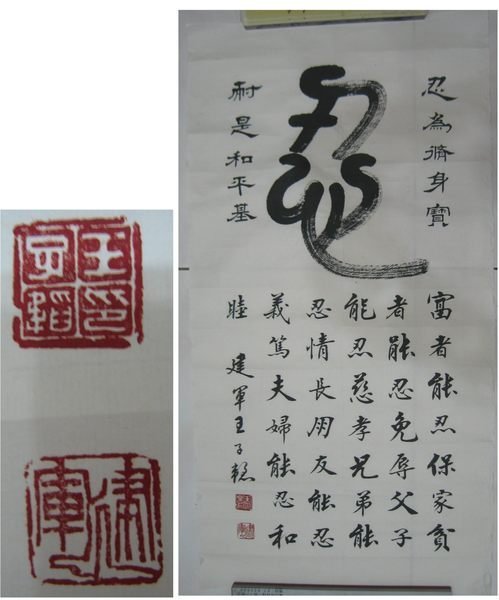 忍
忍為脩身寶
耐是和平基
富者能忍保家貧
者能忍免辱父子
能忍慈孝兄弟能
忍情長朋友能忍
義篤夫婦能忍和
睦
建軍王子韜
王印
子韜
建軍